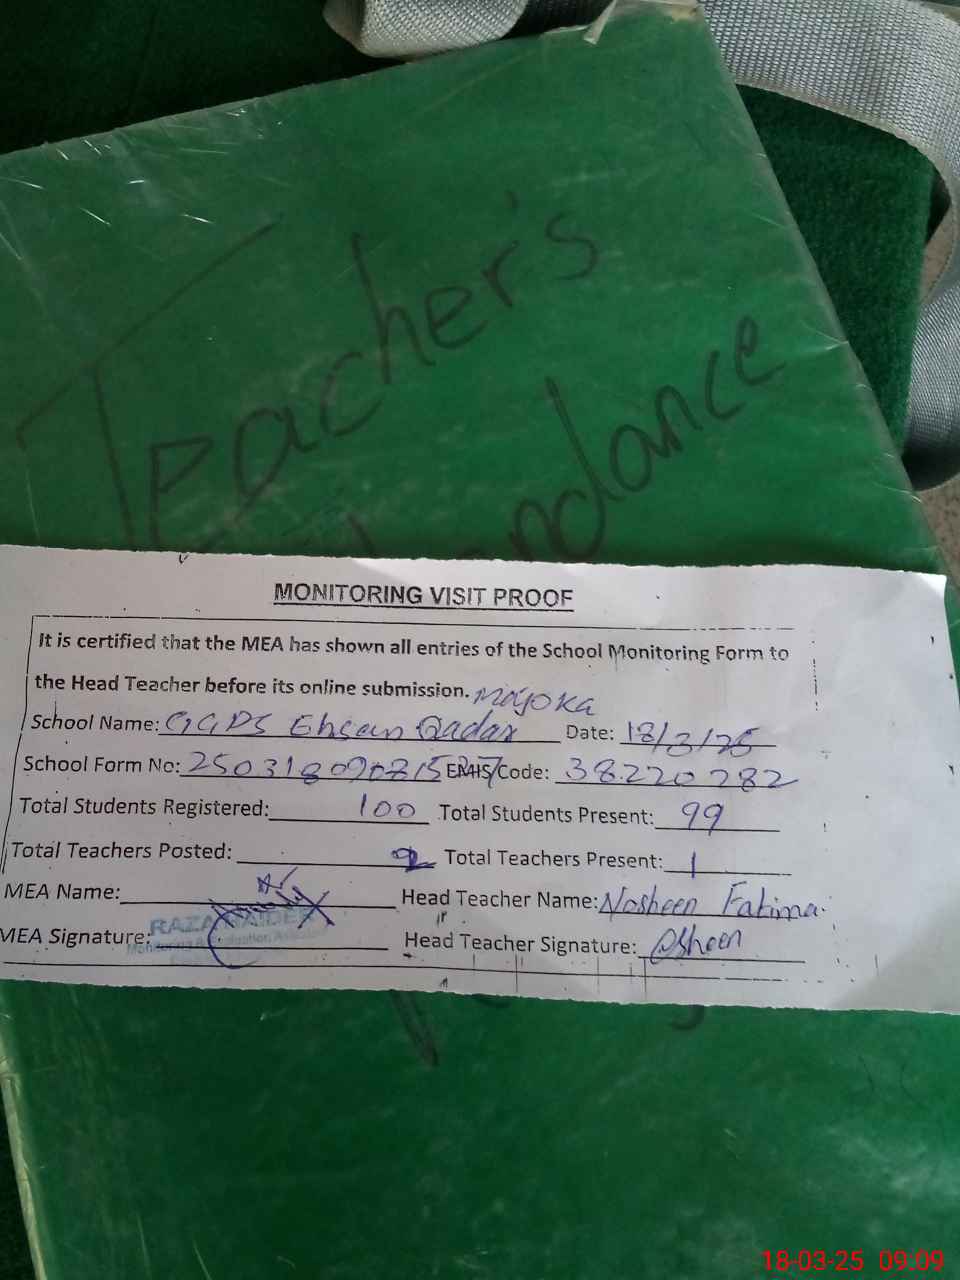 Teacher's
MONITORING VISIT PROOF
It is certified that the MEA has shown all entries of the School Monitoring Form to
the Head Teacher before its online submission.
School Name: Ehsan Qadar Date: 18/3/25
School Form No: EMIS Code: 38220282
Total Students Registered: 100 Total Students Present: 99
Total Teachers Posted: 2 Total Teachers Present: 1
MEA Name: Head Teacher Name: Nosheen Fatima.
RAZA HAIDER
MEA Signature: Head Teacher Signature:
18-03-25 09:09